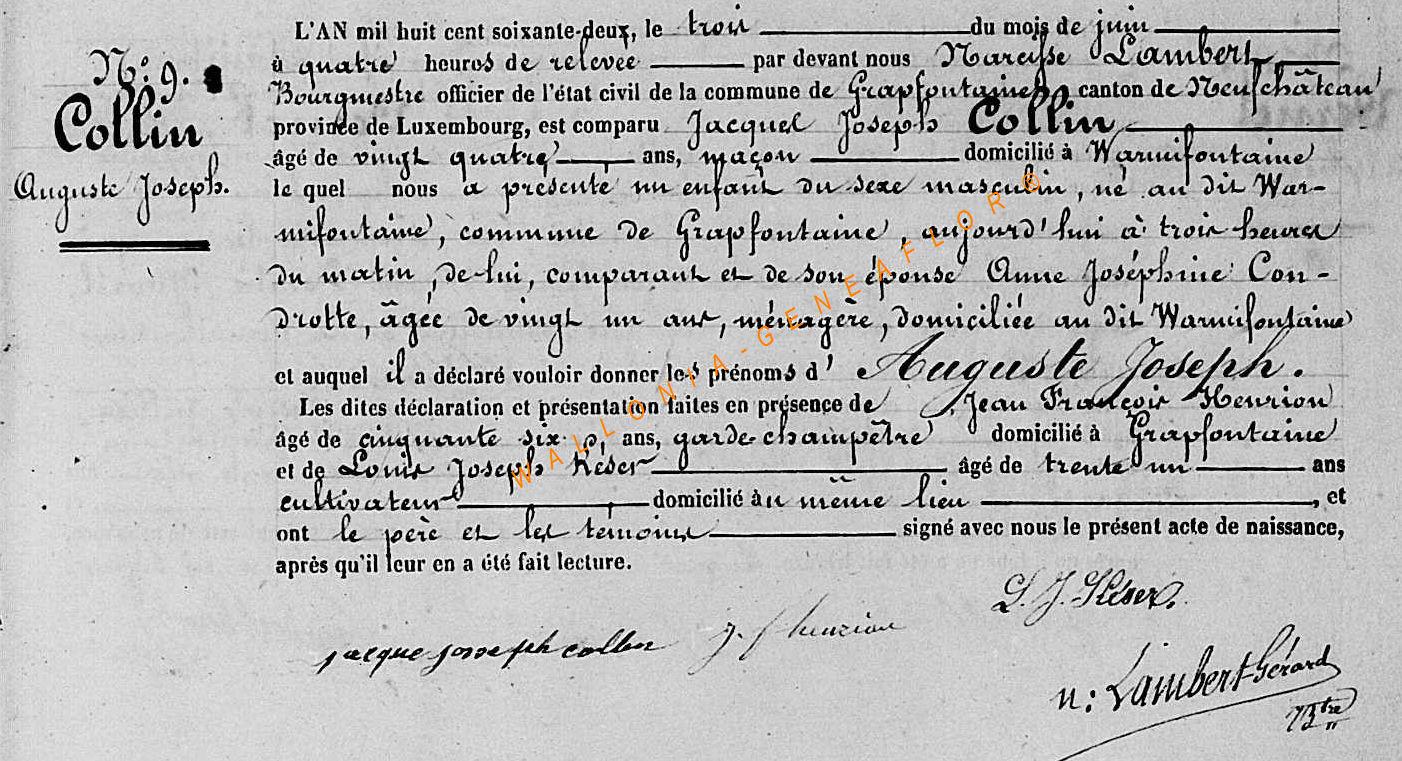 N.º 9.
Collin
Auguste Joseph.
L'AN mil huit cent soixante-deux, le trois du mois de juin
à quatre heures de relevée par devant nous Narcisse Lambert
Bourgmestre officier de l'état civil de la commune de Grapfontaine, canton de Neufchâteau
province de Luxembourg, est comparu Jacques Joseph Collin
âgé de vingt quatre ans, maçon domicilié à Warmifontaine
le quel nous a présenté un enfant du sexe masculin, né au dit War-
mifontaine, commune de Grapfontaine, aujourd'hui à trois heures
du matin, de lui, comparant et de son épouse Anne Joséphine Con-
drotte, âgée de vingt un ans, ménagère, domiciliée au dit Warmifontaine
et auquel il a déclaré vouloir donner les prénoms d' Auguste Joseph.
Les dites déclaration et présentation faites en présence de Jean François Henrion
âgé de cinquante six ans, garde-champêtre domicilié à Grapfontaine
et de Louis Joseph Késer âgé de trente un ans
cultivateur domicilié au même lieu, et
ont le père et les témoins signé avec nous le présent acte de naissance,
après qu'il leur en a été fait lecture.
L. J. Késer.
jacque joseph collin j. f henrion
n: Lambert-Gérard
Btre
WALLONIA-GENEAFLOR®